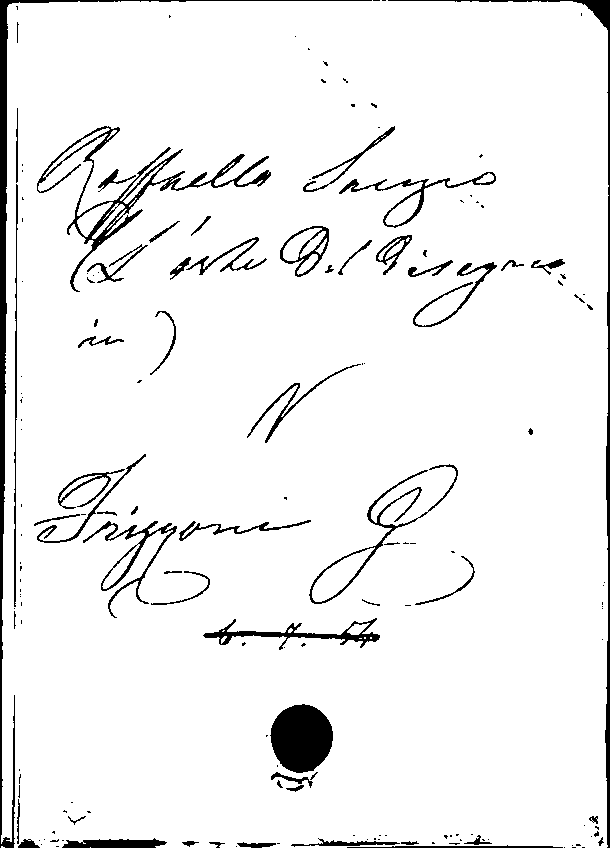 Raffaello Sanzio
(L'arte Del Disegno
in)
V
Frizzoni G
6. 7. 54